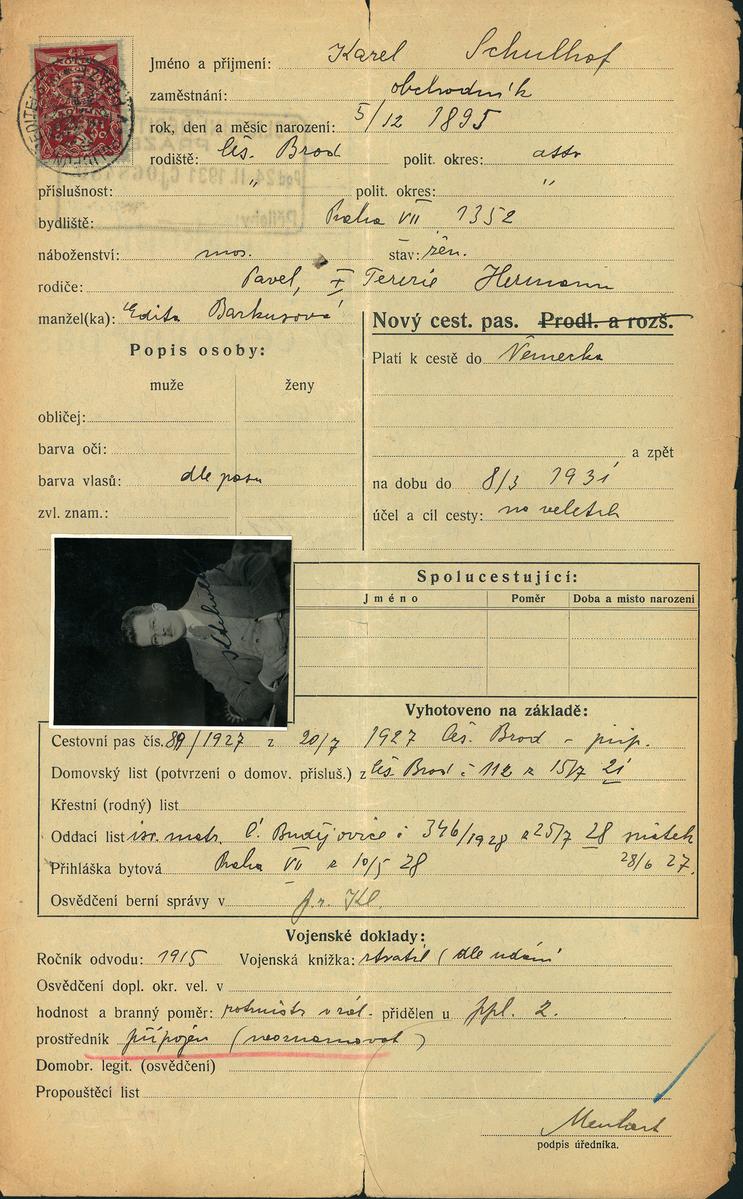 Jméno a příjmení: Karel Schulhof
zaměstnání: obchodník
rok, den a měsíc narození: 5/12 1895
rodiště: Čes. Brod polit. okres:
příslušnost: " polit. okres: "
bydliště: Praha VII 1352
náboženství: mos. stav: žen.
rodiče: Pavel, Terezie Hermann
manžel(ka): Edita Barkusová
Popis osoby:
muže ženy
obličej:
barva očí:
barva vlasů: dle pasu
zvl. znam.:
Nový cest. pas. Prodl. a rozš.
Platí k cestě do Německa
a zpět
na dobu do 8/3 1931
účel a cíl cesty: na veletrh
Spolucestující:
Jméno Poměr Doba a místo narození
Vyhotoveno na základě:
Cestovní pas čís. 89/1927 z 20/7 1927 Čes. Brod - přip.
Domovský list (potvrzení o domov. přísluš.) z Čes. Brod č 112 z 15/7 21
Křestní (rodný) list
Oddací list isr. matr. Č. Budějovice č 346/1928 z 25/7 28 sňatek
28/6 27.
Přihláška bytová Praha VII z 10/5 28
Osvědčení berní správy v
Vojenské doklady:
Ročník odvodu: 1915 Vojenská knížka: ztratil (dle udání
Osvědčení dopl. okr. vel. v
hodnost a branný poměr: rotmistr v zál. přidělen u ppl. 2.
prostředník připojen (neoznamovat)
Domobr. legit. (osvědčení)
Propouštěcí list
podpis úředníka.